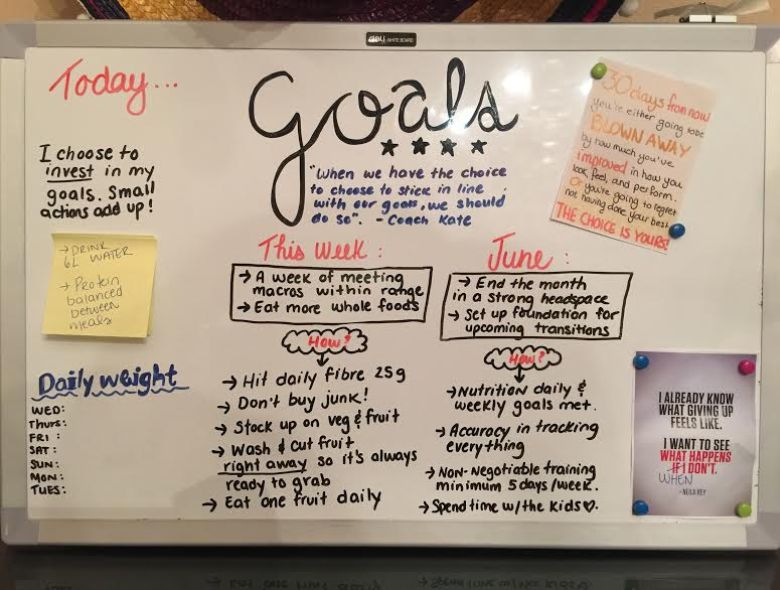 Today...
I choose to
invest in my
goals. Small
actions add up!
→ DRINK
6L WATER
→ Protein
balanced
between
meals
Daily weight
WED:
Thurs:
FRI :
SAT :
SUN:
MON:
TUES:
Goals
★ ★ ★ ★
"When we have the choice
to choose to stick in line
with our goals, we should
do so". - Coach Kate
This Week :
→ A week of meeting
macros within range
→ Eat more whole foods
How?
→ Hit daily fibre 25g
→ Don't buy junk!
→ Stock up on veg & fruit
→ Wash & cut fruit
right away so it's always
ready to grab
→ Eat one fruit daily
June :
→ End the month
in a strong headspace
→ Set up foundation for
upcoming transitions
How?
→ Nutrition daily &
weekly goals met.
→ Accuracy in tracking
everything
→ Non-Negotiable training
minimum 5 days/week.
→ Spend time w/the kids♡.
30 days from now
you're either going to be
BLOWN AWAY
by how much you've
improved in how you
look, feel, and perform.
Or you're going to regret
not having done your best.
THE CHOICE IS YOURS!
I ALREADY KNOW
WHAT GIVING UP
FEELS LIKE.
I WANT TO SEE
WHAT HAPPENS
IF I DON'T.
WHEN